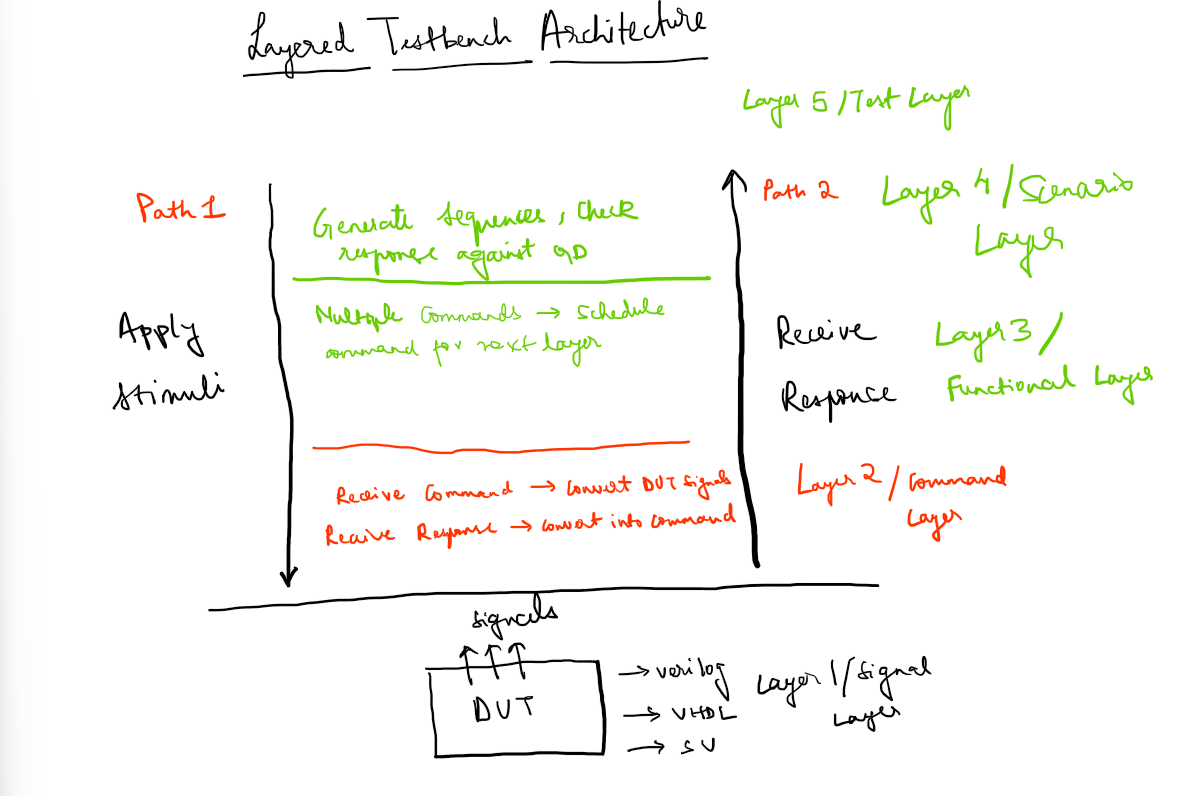 Layered Testbench Architecture
Layer 5 / Test Layer
Path 1
Path 2
Layer 4 / Scenario
Layer
Generate sequences, Check
response against GD
Multiple Commands → Schedule
command for next layer
Apply
Stimuli
Receive
Response
Layer 3 /
Functional Layer
Receive Command → Convert DUT signals
Receive Response → convert into command
Layer 2 / Command
Layer
signals
DUT
→ verilog
→ VHDL
→ SV
Layer 1 / Signal
Layer